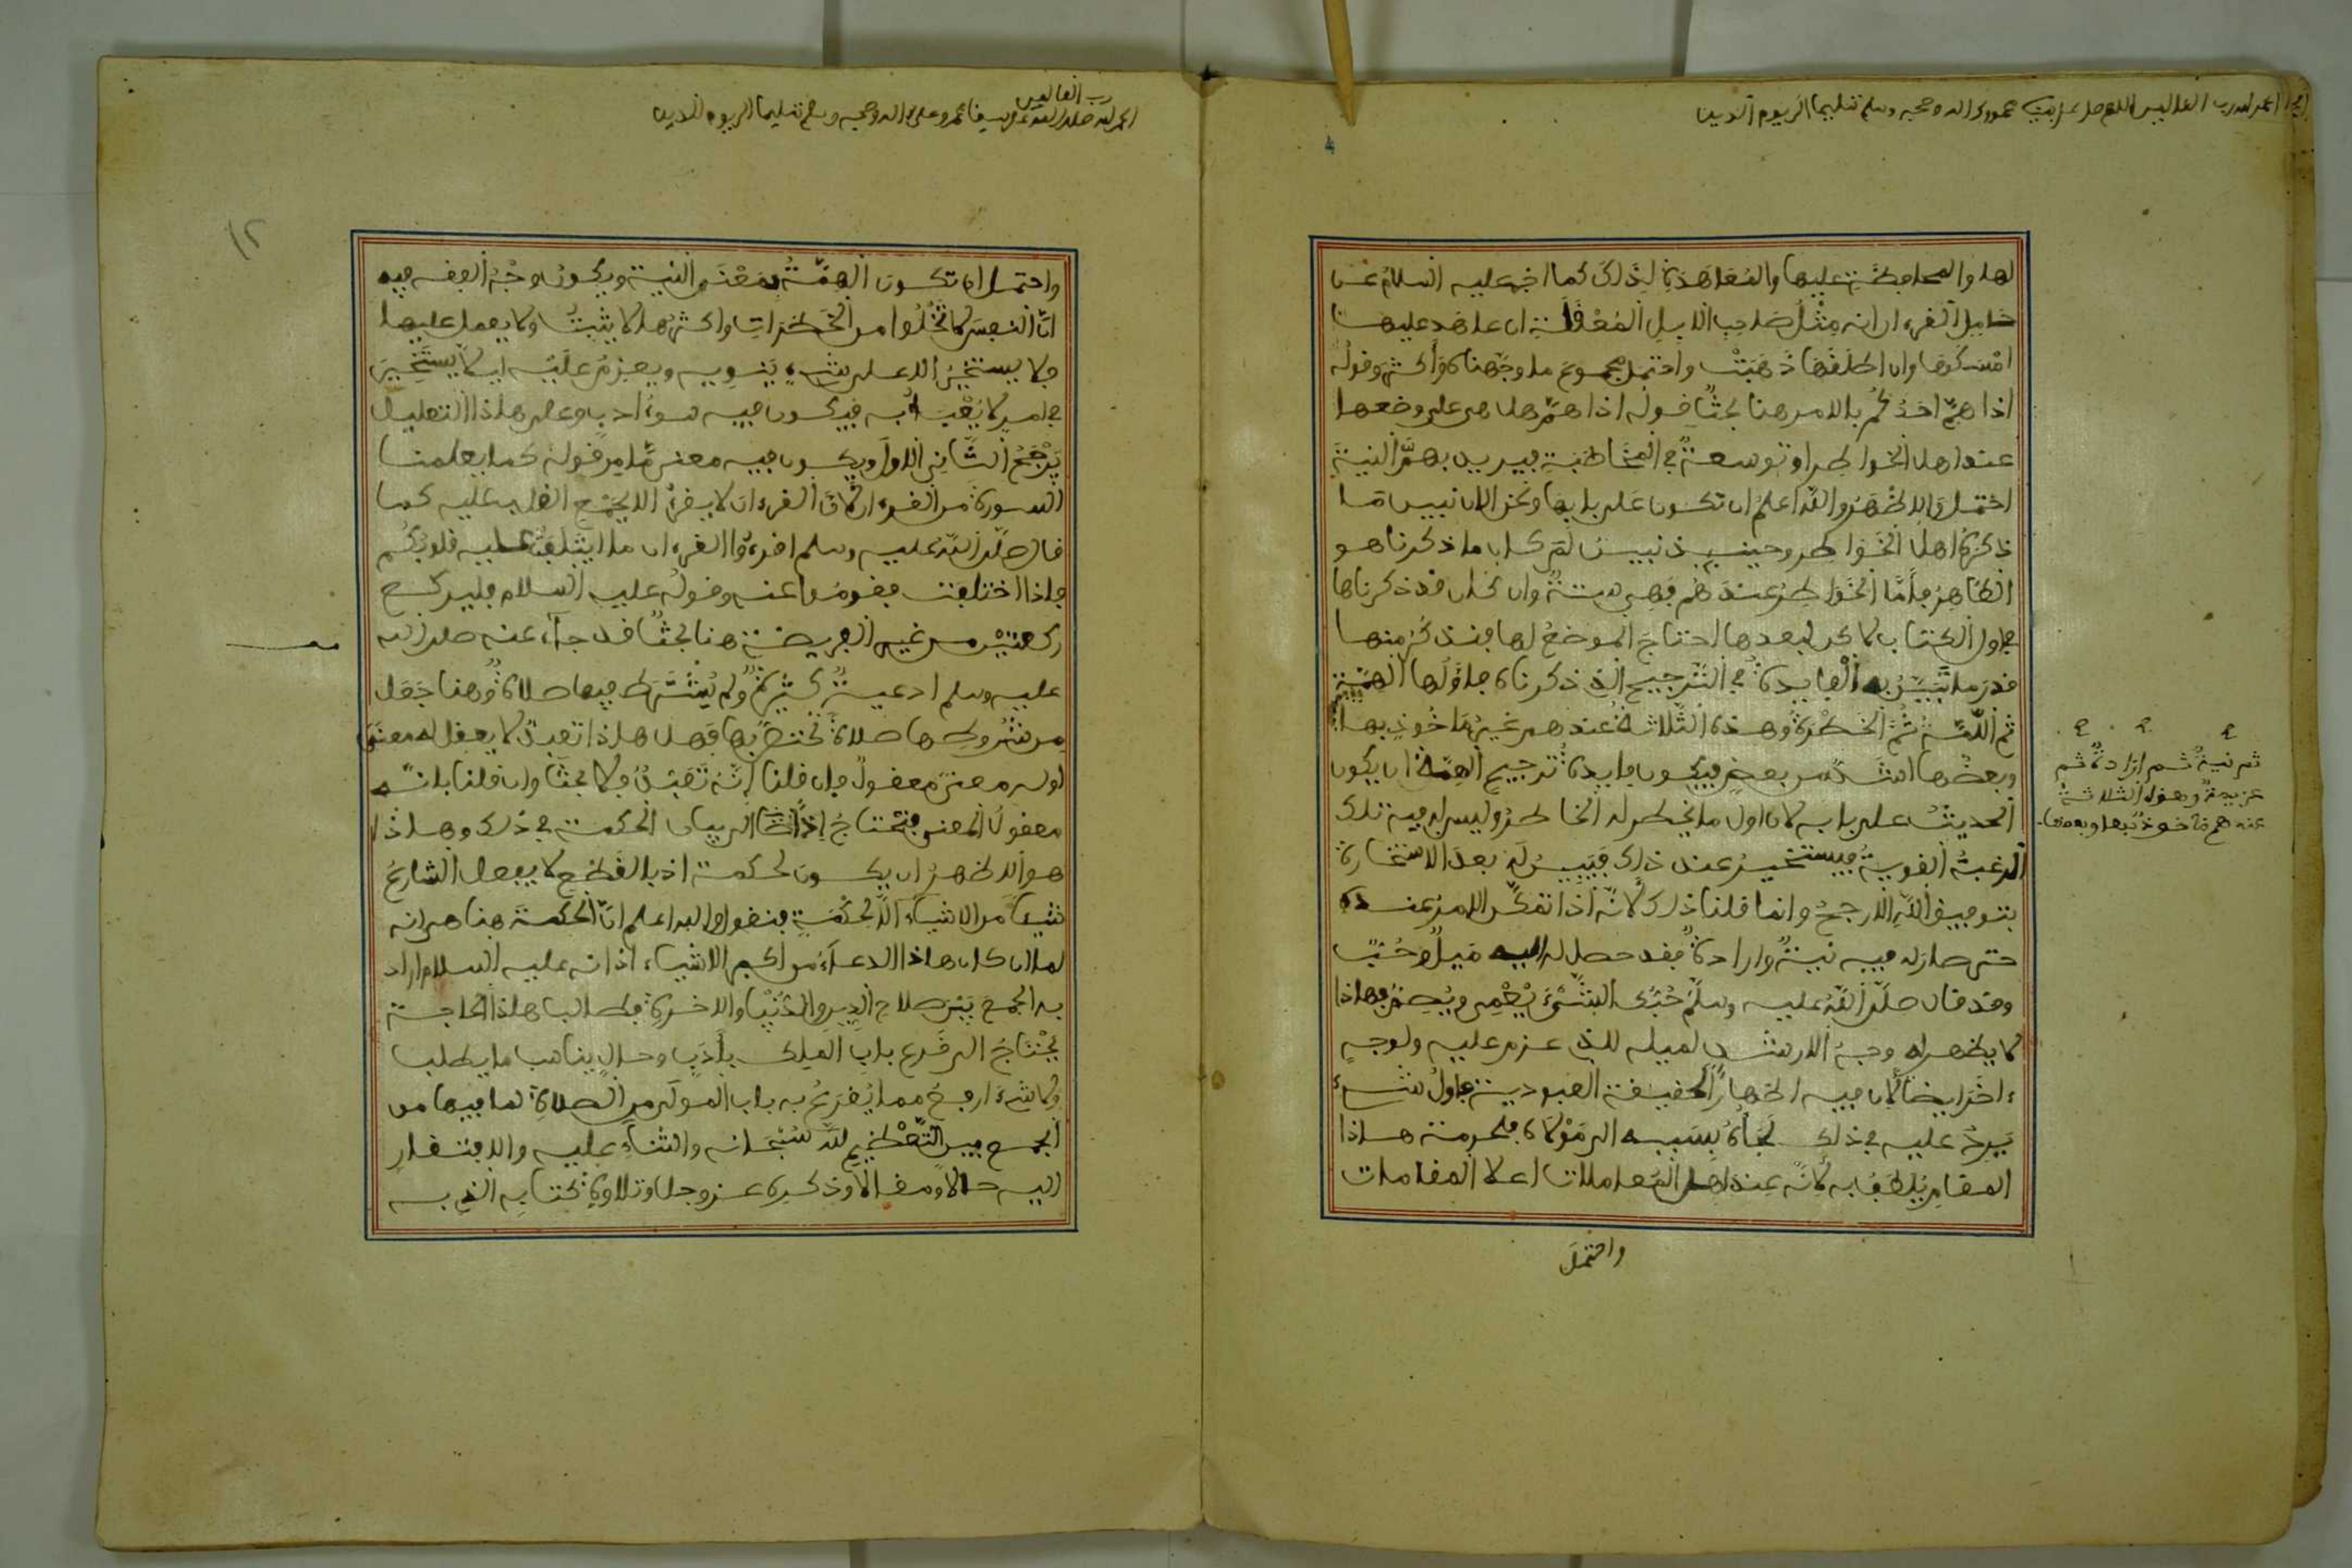 الحمد لله رب العالمين اللهم صل على نبيك محمد وعلى اله وصحبه وسلم تسليما الى يوم الدين
لها والمحافظة عليها والمعاهدة لذلك كما اخبر عليه السلام عن
حامل القرءان انه مثل صاحب الابل المعقلة ان عاهد عليها
امسكها وان اطلقها ذهبت واحتمل مجموع ما وجهناه واكثر وقوله
اذا هم احدكم بالامر هنا بحث قوله اذا هم هل هي على وضعها
عند اهل الخواطر او توسعة في المخاطبة فيريد بهم النية
احتمل والاظهر والله اعلم ان تكون على بابها ونحن الان نبين ما
ذكره اهل الخواطر وحينئذ نبين لم كان ما ذكرناه هو
الظاهر فاما الخواطر عندهم فهي ستة وان كان قد ذكرناها
في اول الكتاب لاكن لبعدها احتاج الموضع لها فنذكر منها
قدر ما تبين به الفايدة في الترجيح الذي ذكرناه فاولها الهمة
ثم اللمة ثم الخطرة وهذه الثلاثة عندهم غير ماخوذ بها
ثم نية ثم ارادة ثم
عزيمة وهذه الثلاثة
عندهم ماخوذ بها وبعضها
وبعضها اشد من بعض فيكون فايدة ترجيح الهمة ان يكون
الحديث على بابه لان اول ما يخطر له الخاطر وليس له فيه تلك
الرغبة القوية فيستخير عند ذلك فيبين له بعد الاستخارة
بتوفيق الله الارجح وانما قلنا ذلك لانه اذا تمكن الامر عنده
حتى صار له فيه نية وارادة فقد حصل له اليه ميل وحب
وقد قال صلى الله عليه وسلم حبك الشيء يعمي ويصم فهاذا
لا يظهر له وجه الارشد لميله للذي عزم عليه ولوجه
ءاخر ايضا لان فيه اظهارا لحقيقة العبودية فاول شيء
يرد عليه في ذلك لجاه بسببه الى مولاه فلحرمة هاذا
المقام يلطف به لانه عند اهل المعاملات اعلا المقامات
واحتمل
رب العالمين
الحمد لله صلى الله على سيدنا محمد وعلى اله وصحبه وسلم تسليما الى يوم الدين
١٢
واحتمل ان تكون الهمة بمعنى النية ويكون وجه الفقه فيه
ان النفس لا تخلوا من الخطرات واكثرها لا يثبت ولا يعمل عليها
فلا يستخير الا على شيء ينويه ويعزم عليه لئلا يستخير
في امر لا يعبا به فيكون فيه سوء ادب وعلى هاذا التعليل
يرجح الثاني الاول ويكون فيه معنى ما من قوله كما يعلمنا
السورة من القرءان لان القرءان لا يقرا الا بجمع القلب عليه كما
قال صلى الله عليه وسلم اقرءوا القرءان ما ايتلفت عليه قلوبكم
فاذا اختلفت فقوموا عنه وقوله عليه السلام فليركع
ركعتين من غير الفريضة هنا بحث قد جاء عنه صلى الله
عليه وسلم ادعية كثيرة ولم يشترط فيها صلاة وهنا جعل
من شروطها صلاة تختص بها فهل هاذا تعبد لا يعقل له معنى
او له معنى معقول فان قلنا انه تعبد فلا بحث وان قلنا بانه
معقول المعنى فنحتاج اذا الى بيان الحكمة في ذلك وهاذا
هو الاظهر ان يكون لحكمة اذ بالقطع لا يفعل الشارع
شيئا من الاشياء الا لحكمة فنقول والله اعلم ان الحكمة هنا هي انه
لما ان كان هاذا الدعاء من اكبر الاشياء اذ انه عليه السلام اراد
به الجمع بين صلاح الدين والدنيا والاخرة فطالب هاذه الحاجة
يحتاج الى قرع باب الملك بادب وحال يناسب ما يطلب
ولا شيء ارفع مما يقرع به باب المولى من الصلاة لما فيها من
الجمع بين التعظيم لله سبحانه والثناء عليه والافتقار
اليه حالا ومقالا وذكره عز وجل وتلاوة كتابه الذي به